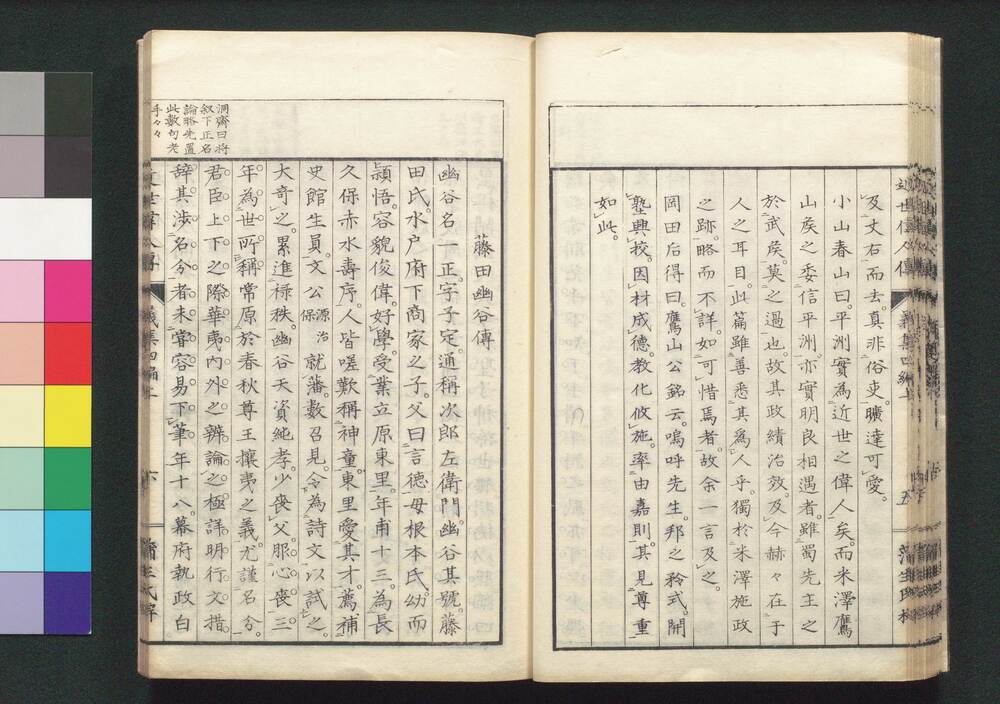 及丈右而去。真非俗吏。曠達可愛。
小山春山曰。平洲實為近世之偉人矣。而米澤鷹
山矦之委信平洲。亦實明良相遇者。雖蜀先主之
於武矦。莫之過也。故其政績治效。及今赫々在于
人之耳目。此篇雖善悉其為人乎。獨於米澤施政
之跡。略而不詳。如可惜焉者。故余一言及之。
岡田后得曰。鷹山公銘云。嗚呼先生。邦之矜式。開
塾興挍。因材成德。教化攸施。率由嘉則。其見尊重
如此。
近世偉人傳
義集四編上
五
藤田幽谷傳
幽谷名一正。字子定。通稱次郎左衛門。幽谷其號。藤
田氏。水户府下商家之子。父曰言德。母根本氏。幼而
頴悟。容貌俊偉。好學。受業立原東里。年甫十三。為長
久保赤水壽序。人皆嗟歎稱神童。東里愛其才。薦補
史館生員。文公源治保就藩。數召見。令為詩文以試之。
大奇之。累進祿秩。幽谷天資純孝。少喪父。服心喪三
年。為世所稱。常原於春秋尊王攘夷之義。尤謹名分。
君臣上下之際。華夷內外之辨。論之極詳明。行文措
辭。其涉名分者。未嘗容易下筆。年十八。幕府執政白
洞齋曰將
叙下正名
論略先置
此數句老
手々々
義集四編上
六